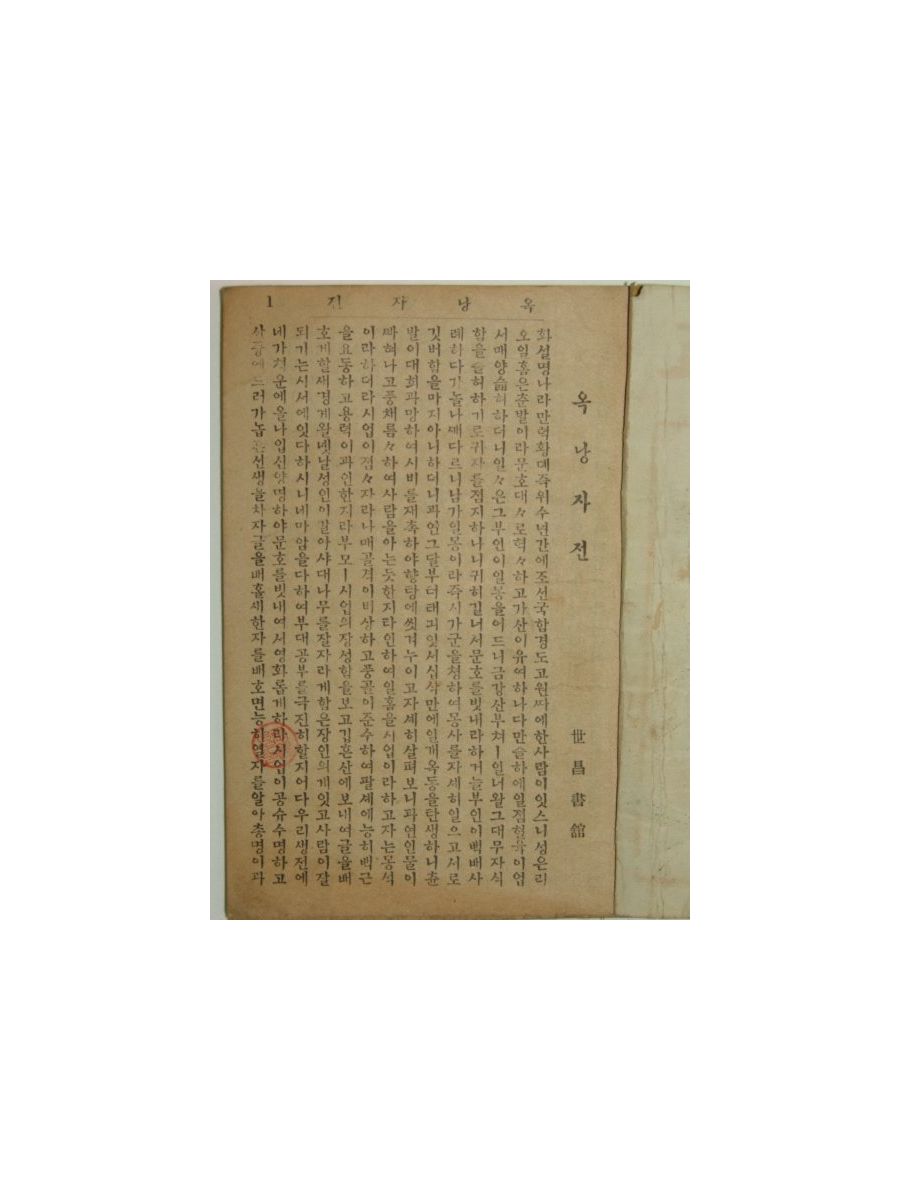 옥낭자전 1
옥낭자전
世昌書舘
화설명나라만력황뎨즉위수년간에조선국함경도고원따에한사람이잇스니성은리
오일홈은춘발이라문호대々로혁々하고가산이유여하나다만슬하에일점혈육이업
서매양슬허하더니일々은그부인이일몽을어드니금강산부쳐ㅣ일너왈그대무자식
함을슬허하기로귀자를점지하나니귀히길너서문호를빗내라하거늘부인이백배사
례하다가놀나깨다르니남가일몽이라즉시가군을청하여몽사를자세히일으고서로
깃버함을마지아니하더니과연그달부터태긔잇서십삭만에일개옥동을탄생하니츈
발이대희과망하여시비를재촉하야향탕에씻겨누이고자셰히살펴보니과연인물이
빠혀나고풍채름々하여사람을아는듯한지라인하여일홈을시업이라하고자는몽석
이라하더라시업이졈々자라나매골격이비상하고풍골이준수하여팔셰에능히백근
을요동하고용력이과인한지라부모ㅣ시업의장성함을보고깁흔산에보내여글을배
호게할새경계왈녯날성인이갈아샤대나무를잘자라게함은장인의게잇고사람이잘
되기는시서에잇다하시니네마암을다하여부대공부를극진히할지어다우리생전에
네가쳥운에올나입신양명하야문호를빗내여서영화롭게하라시업이공슈수명하고
사중에드러가놉흔선생을차자글을배홀세한자를배호면능히열자를알아총명이과